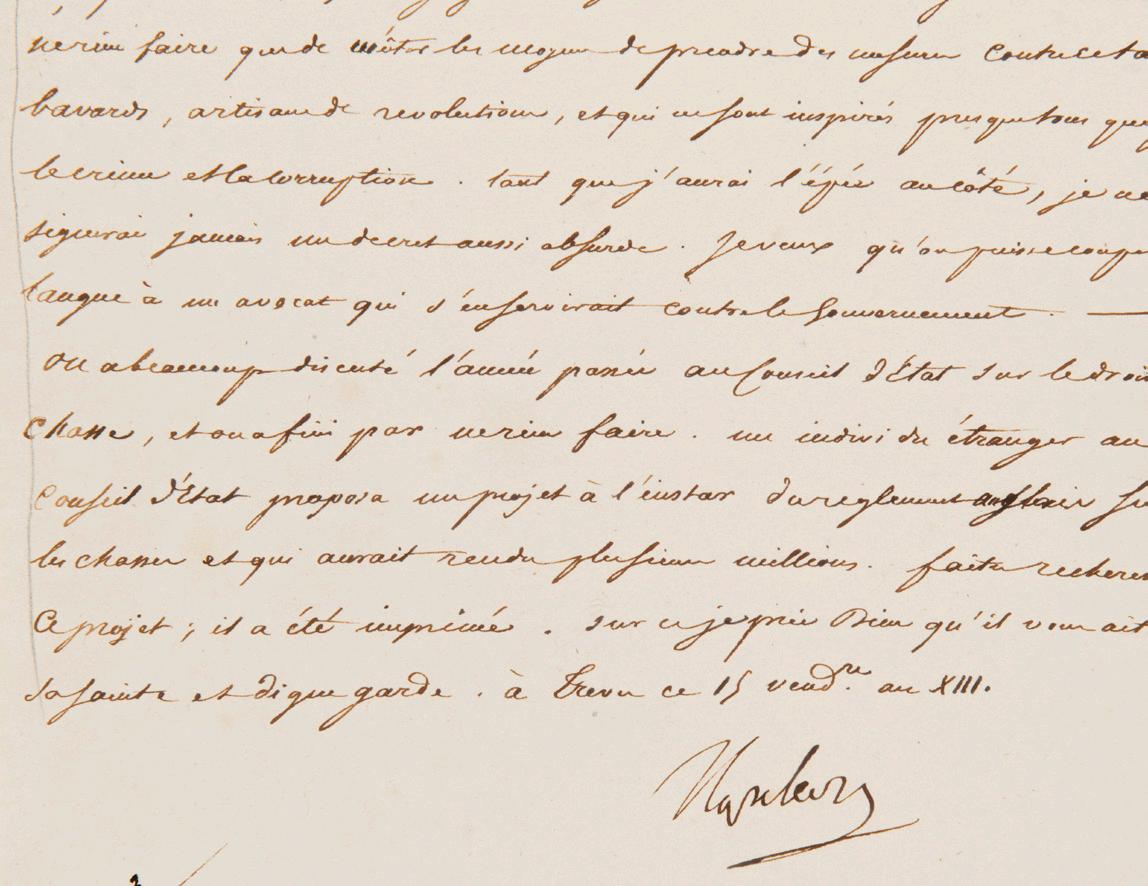 ne rien faire que de m'ôter les moyens de prendre des mesures contre ce ta
bavards, artisans de revolutions, et qui ne sont inspirés presque tous que
le crime et la corruption. tant que j'aurai l'épée au côté, je ne
signerai jamais un decret aussi absurde. Je veux qu'on puisse coupe
langue à un avocat qui s'en servirait contre le Gouvernement. —
On a beaucoup discuté l'année passée au Conseil d'État sur le droit
chasse, et on a fini par ne rien faire. un individu étranger au
Conseil d'État proposa un projet à l'instar du reglement anglais su
les chasses et qui aurait rendu plusieurs millions. faites recherc
Ce projet; il a été imprimé. sur ce je prie Dieu qu'il vous ait
sa sainte et digne garde. à Treves ce 15 vend.re an XIII.
Napoleon
2